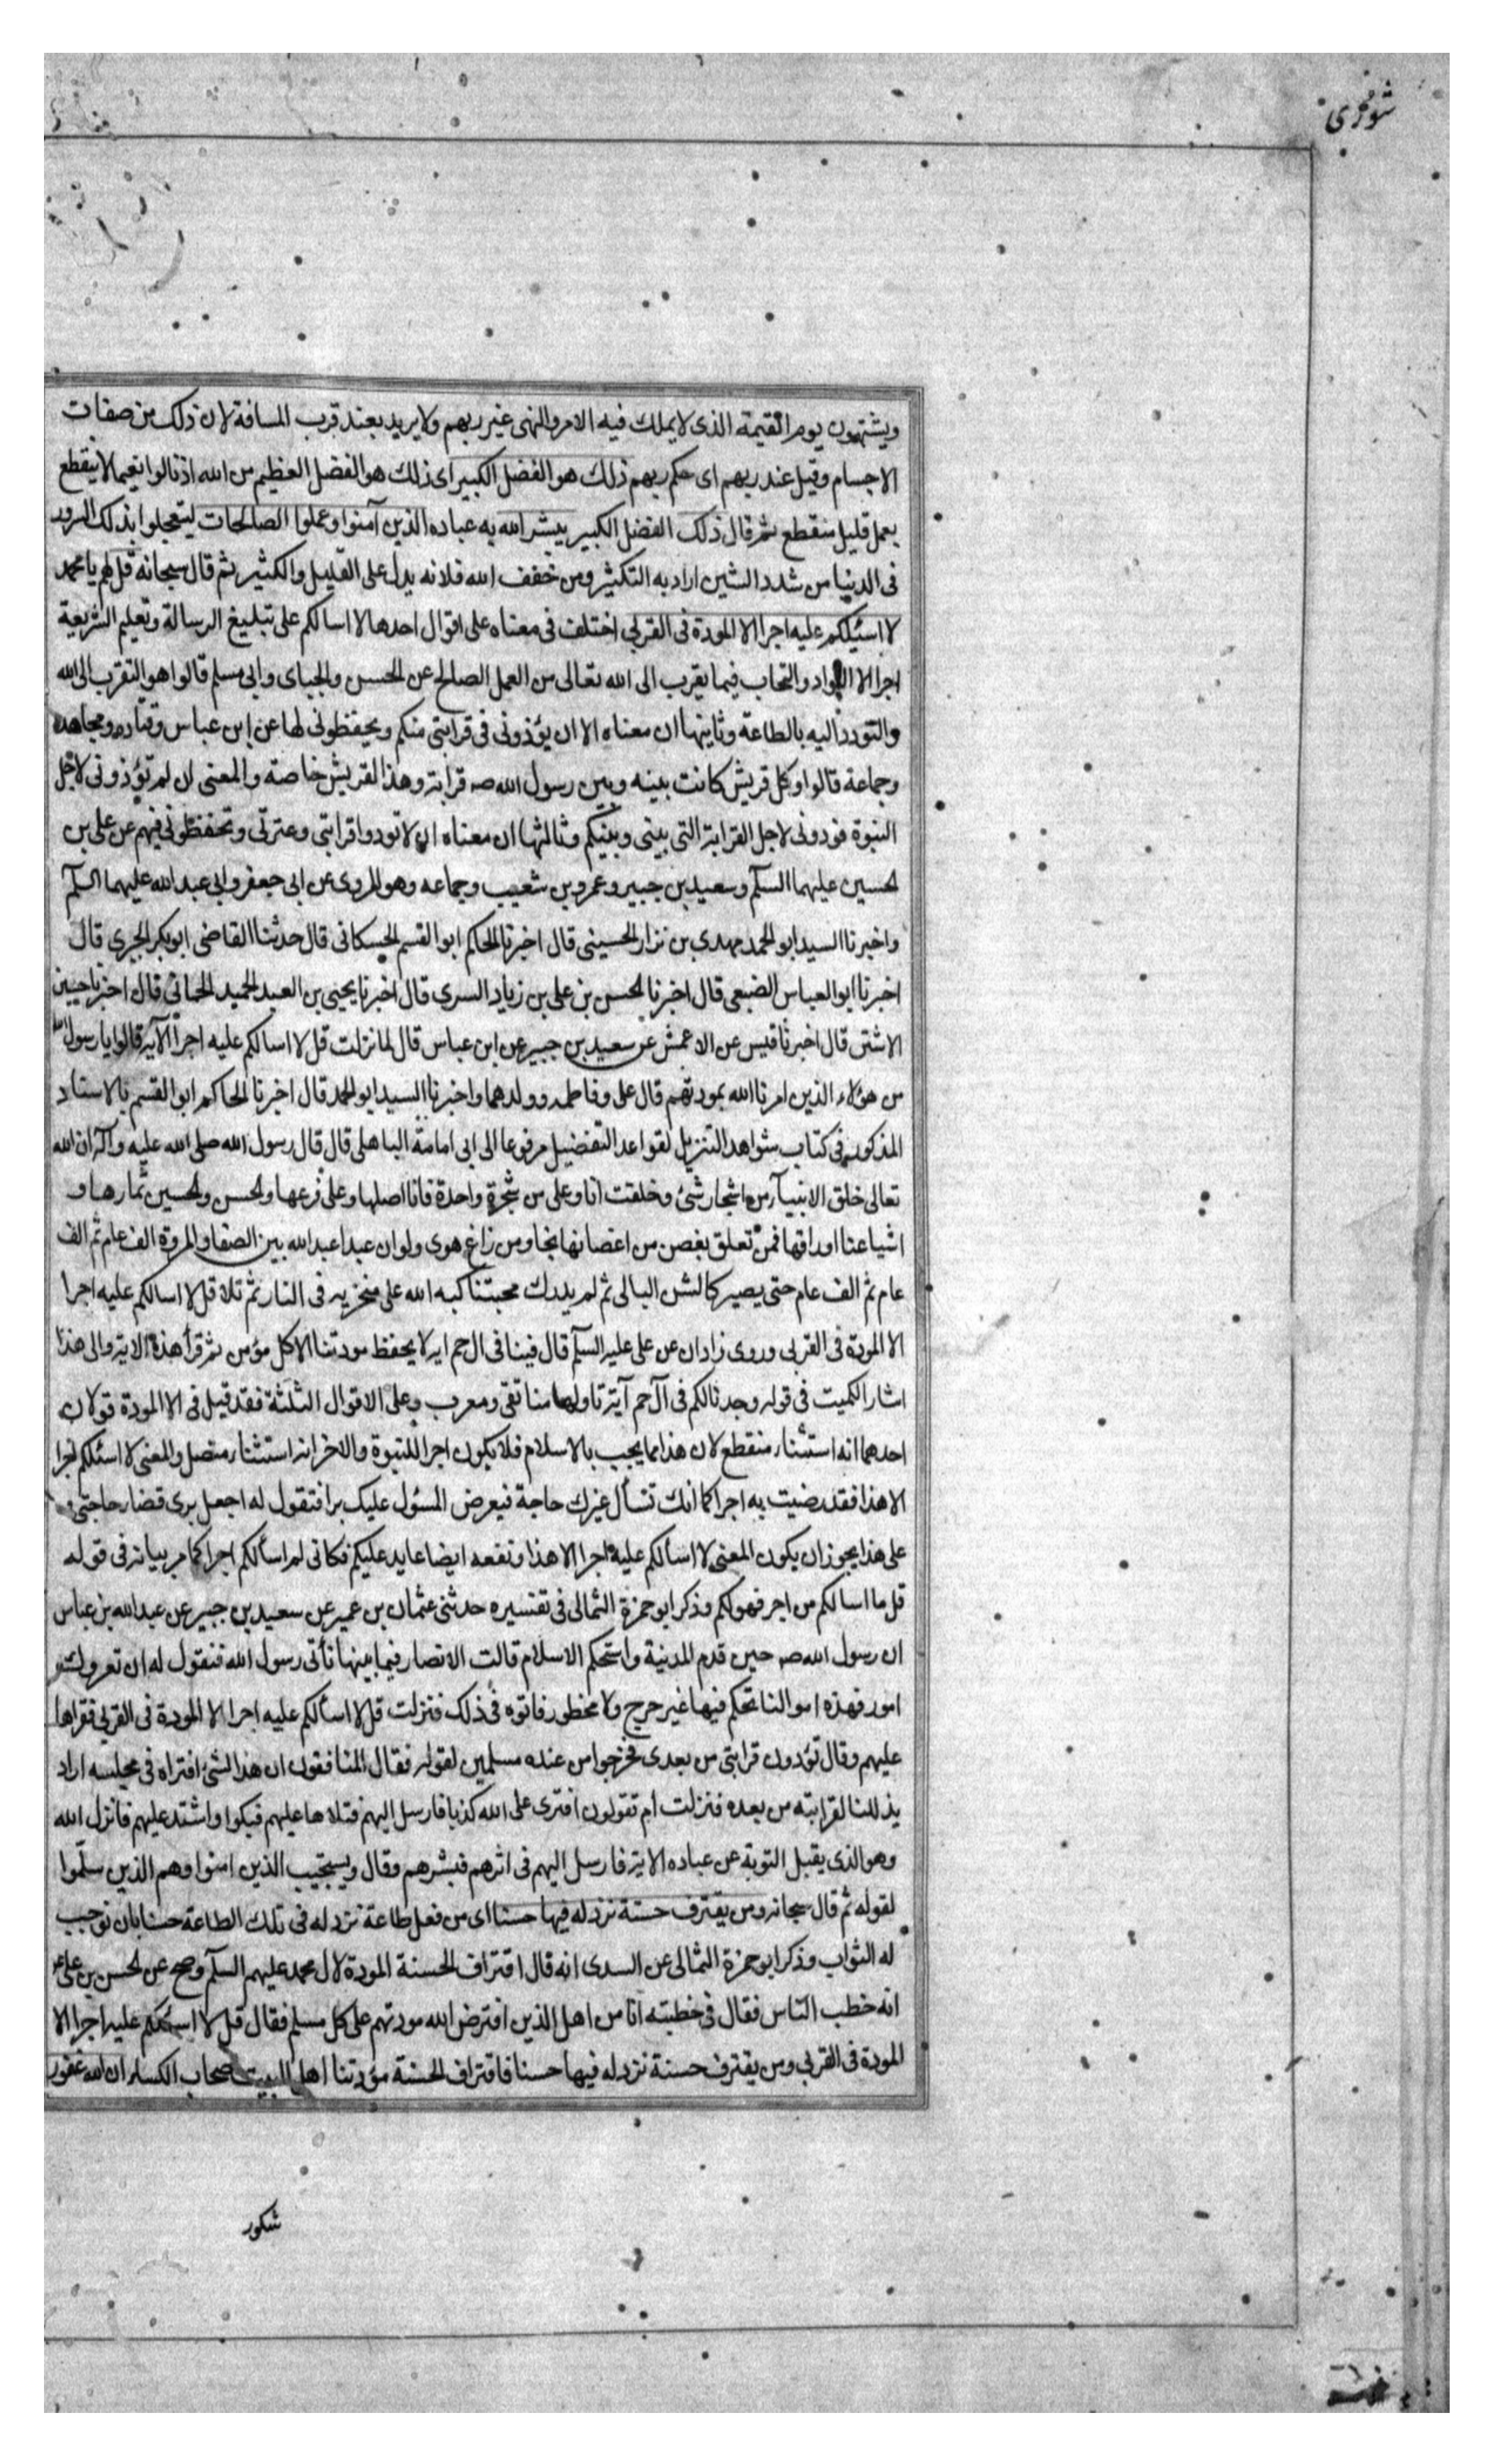 شورى
ويشتهون يوم القيمة الذى لا يملك فيه الامر والنهى غير ربهم ولا يريد بعند قرب المسافة لان ذلك من صفات
الاجسام وقيل عند ربهم اى حكم ربهم ذلك هو الفضل الكبير اى ذلك هو الفضل العظيم من الله اذ نالوا نعيما لا ينقطع
بعمل قليل منقطع ثم قال ذلك الفضل الكبير يبشر الله به عباده الذين آمنوا وعملوا الصالحات ليتعجلوا بذلك السرور
فى الدنيا من شدد الشين اراد به التكثير ومن خفف الله فلانه يدل على القليل والكثير ثم قال سبحانه قل لهم يا محمد
لا اسئلكم عليه اجرا الا المودة فى القربى اختلف فى معناه على اقوال احدها لا اسالكم على تبليغ الرسالة وتعليم الشريعة
اجرا الا التواد والتحاب فيما يقرب الى الله تعالى من العمل الصالح عن الحسن والجباى وابى مسلم قالوا هو التقرب الى الله
والتودد اليه بالطاعة وثانيها ان معناه الا ان يؤذونى فى قرابتى منكم ويحفظونى لها عن ابن عباس وقتاده ومجاهد
وجماعة قالوا وكل قريش كانت بينه وبين رسول الله صه قرابة وهذا القريش خاصة والمعنى ان لم تؤذونى لاجل
النبوة فودونى لاجل القرابة التى بينى وبينكم وثالثها ان معناه ان لا تودوا قرابتى وعترتى وتحفظونى فيهم عن على بن
لحسين عليهما السلم وسعيد بن جبير وعمرو بن شعيب وجماعه وهو المروى عن ابى جعفر وابى عبد الله عليهما السلم
واخبرنا السيد ابو الحمد مهدى بن نزار الحسينى قال اخبرنا الحاكم ابو القسم الحسكانى قال حدثنا القاضى ابو بكر الحيرى قال
اخبرنا ابو العباس الضبعى قال اخبرنا الحسن بن على بن زياد السرى قال اخبرنا يحيى بن العبد الحميد الحمانى قال اخبرنا حسين
الاشتر قال اخبرنا قيس عن الاعمش عن سعيد بن جبير عن ابن عباس قال لما نزلت قل لا اسالكم عليه اجرا الآية قالوا يا رسول الله
من هؤلاء الذين امرنا الله بمودتهم قال على وفاطمه وولدهما واخبرنا السيد ابو الحمد قال اخبرنا الحاكم ابو القسم بالاسناد
المذكور فى كتاب شواهد التنزيل لقواعد التفضيل مرفوعا الى ابى امامة الباهلى قال قال رسول الله صلى الله عليه وآله ان الله
تعالى خلق الانبيآء من اشجار شتى وخلقت انا وعلى من شجرة واحدة فانا اصلها وعلى فرعها ولحسن ولحسين ثمارها و
اشياعنا اوراقها فمن تعلق بغصن من اغصانها نجا ومن زاغ هوى ولو ان عبدا عبد الله بين الصفا والمروة الف عام ثم الف
عام ثم الف عام حتى يصير كالشن البالى ثم لم يدرك محبتنا كبه الله على منخريه فى النار ثم تلا قل لا اسالكم عليه اجرا
الا المودة فى القربى وروى زاذان عن على عليه السلم قال فينا فى ال حم ايه لا يحفظ مودتنا الا كل مؤمن ثم قرأ هذه الاية والى هذا
اشار الكميت فى قوله وجدنا لكم فى آل حم آية تاولها منا تقى ومعرب وعلى الاقوال الثلثة فقد قيل فى الا المودة قولان
احدهما انه استثناء منقطع لان هذا مما يجب بالاسلام فلا يكون اجرا للنبوة والاخر انه استثناء متصل والمعنى لا اسئلكم اجرا
الا هذا فقد رضيت به اجرا كما انك تسأل غيرك حاجة فيعرض المسؤل عليك برا فتقول له اجعل برى قضاء حاجتى و
على هذا يجوز ان يكون المعنى لا اسالكم عليه اجرا الا هذا ونفعه ايضا عايد عليكم فكانى لم اسألكم اجرا كما مر بيانه فى قوله
قل ما اسالكم من اجر فهو لكم وذكر ابو حمزة الثمالى فى تفسيره حدثنى عثمان بن عمير عن سعيد بن جبير عن عبد الله بن عباس
ان رسول الله صه حين قدم المدنية واستحكم الاسلام قالت الانصار فيما بينها نأتى رسول الله فنقول له ان تعروك
امور فهذه اموالنا تحكم فيها غير حرج ولا محظور فاتوه فى ذلك فنزلت قل لا اسألكم عليه اجرا الا المودة فى القربى فقراها
عليهم وقال تؤدون قرابتى من بعدى فخرجوا من عنده مسلمين لقوله فقال المنافقون ان هذا الشئ افتراه فى مجلسه اراد
يذللنا لقرابته من بعده فنزلت ام تقولون افترى على الله كذبا فارسل اليهم فتلاها عليهم فبكوا واشتد عليهم فانزل الله
وهو الذى يقبل التوبة عن عباده الاية فارسل اليهم فى اثرهم فبشرهم وقال ويستجيب الذين امنوا وهم الذين سلموا
لقوله ثم قال سبحانه ومن يقترف حسنة نزد له فيها حسنا اى من فعل طاعة نزد له فى تلك الطاعة حسنا بان نوجب
له الثواب وذكر ابو حمزة الثمالى عن السدى انه قال اقتراف الحسنة المودة لال محمد عليهم السلم وصح عن لحسن بن على ع
انه خطب الناس فقال فى خطبته انا من اهل الذين افترض الله مودتهم على كل مسلم فقال قل لا اسئلكم عليه اجرا الا
المودة فى القربى ومن يقترف حسنة نزد له فيها حسنا فاقتراف الحسنة مودتنا اهل البيت اصحاب الكساء ان الله غفور
شكور